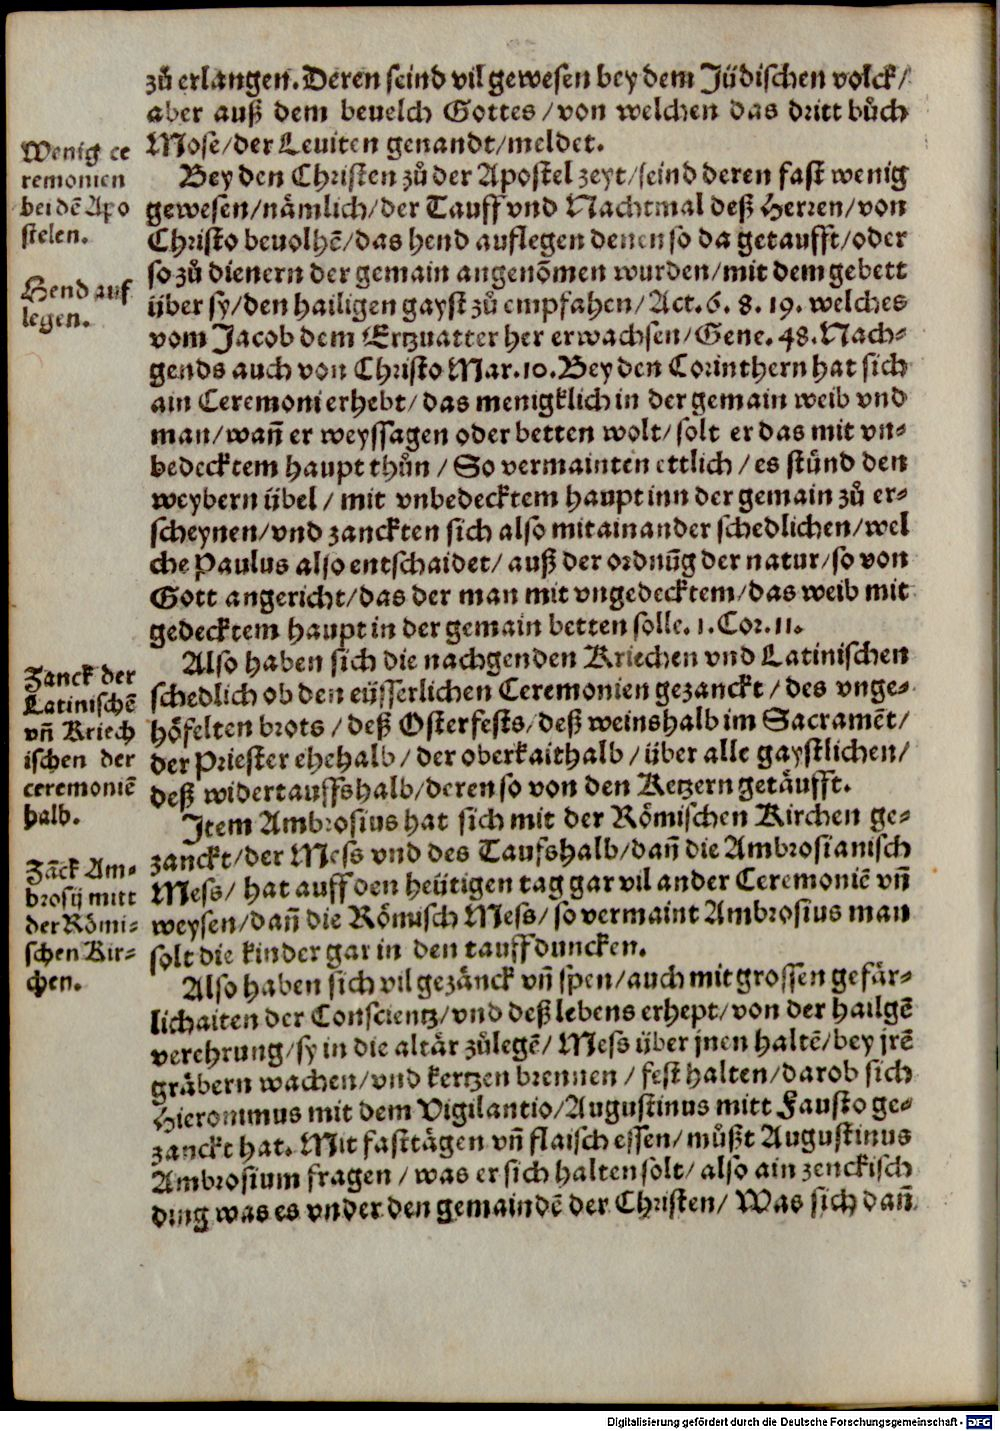 zů erlangen. Deren seind vil gewesen bey dem Jüdischen volck/
aber auß dem beuelch Gottes/von welchen das dritt bůch
Mose/der Leuiten genandt/meldet.
Wenig ce
remonien
bei dē Apo
stelen.
Bey den Christen zů der Apostel zeyt/seind deren fast wenig
gewesen/nämlich/der Tauff vnd Nachtmal deß Herren/von
Christo beuolhē/das hend auflegen denen so da getaufft/oder
so zů dienern der gemain angenōmen wurden/mit dem gebett
Hend auf
legen.
über sy/den hailigen gayst zů empfahen/Act. 6. 8. 19. welches
vom Jacob dem Ertzuatter her erwachsen/Gene. 48. Nach-
gends auch von Christo Mar. 10. Bey den Corinthern hat sich
ain Ceremoni erhebt/das menigklich in der gemain weib vnd
man/wañ er weyssagen oder betten wolt/solt er das mit vn-
bedecktem haupt thůn/So vermainten ettlich/es stůnd den
weybern übel/mit vnbedecktem haupt inn der gemain zů er-
scheynen/vnd zanckten sich also mitainander schedlichen/wel
che Paulus also entschaidet/auß der ordnūg der natur/so von
Gott angericht/das der man mit vngedecktem/das weib mit
gedecktem haupt in der gemain betten solle. 1. Cor. 11.
Zanck der
Latinischē
vñ Kriech
ischen der
ceremoniē
halb.
Also haben sich die nachgenden Kriechen vnd Latinischen
schedlich ob den eüsserlichen Ceremonien gezanckt/des vnge-
höfelten brots/deß Osterfests/deß weinshalb im Sacramēt/
der Priester ehehalb/der oberkaithalb/über alle gaystlichen/
deß widertauffshalb/deren so von den Ketzern getäufft.
Item Ambrosius hat sich mit der Römischen Kirchen ge-
Zāck Am-
brosij mitt
der Römi-
schen Kir-
chen.
zanckt/der Mess vnd des Taufshalb/dañ die Ambrosianisch
Mess/hat auff den heütigen tag gar vil ander Ceremoniē vñ
weysen/dañ die Römisch Mess/so vermaint Ambrosius man
solt die kinder gar in den tauff duncken.
Also haben sich vil gezänck vñ spen/auch mit grossen gefär-
lichaiten der Conscientz/vnd deß lebens erhept/von der hailgē
verehrung/sy in die altär zůlegē/Mess über jnen haltē/bey jrē
gräbern wachen/vnd kertzen brennen/fest halten/darob sich
Hieronimus mit dem Vigilantio/Augustinus mitt Fausto ge-
zanckt hat. Mit fasttägen vñ flaisch essen/můßt Augustinus
Ambrosium fragen/was er sich halten solt/also ain zenckisch
ding was es vnder den gemaindē der Christen/Was sich dañ
Digitalisierung gefördert durch die Deutsche Forschungsgemeinschaft - DFG